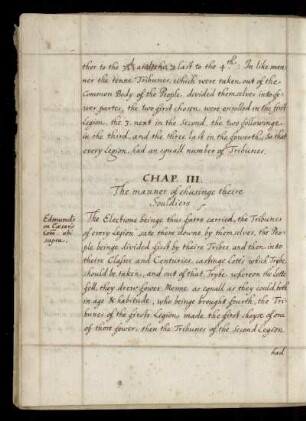 ther to the 3d and the 3 last to the 4th: In like man-
ner the tenne Tribunes, which were taken out of the
Common Body of the People, divided themselves into fo-
wer partes, the two first chosen, were enrolled in the first
legion, the 3. next in the Second, the two followinge
in the third, and the three last in the fowerth: So that
every legion, had an equall number of Tribunes.
CHAP. III.
The manner of chusinge theire
Souldiers
Edmunds
on Cæsars
Com. ubi
supra.
The Elections beinge thus farre carried, the Tribunes
of every legion sate them downe by themselves, the Peo-
ple beinge divided first by theire Tribes, and then into
theire Classes and Centuries, castinge Lotts which Trybe
should be taken, and out of that Trybe whereon the lotte
fell, they drew fower Menne as equall as they could both
in age & habitude, who beinge brought fourth, the Tri-
bunes of the firste Legions made the first choyse of one
of those fower, then the Tribunes of the Second Legion
had